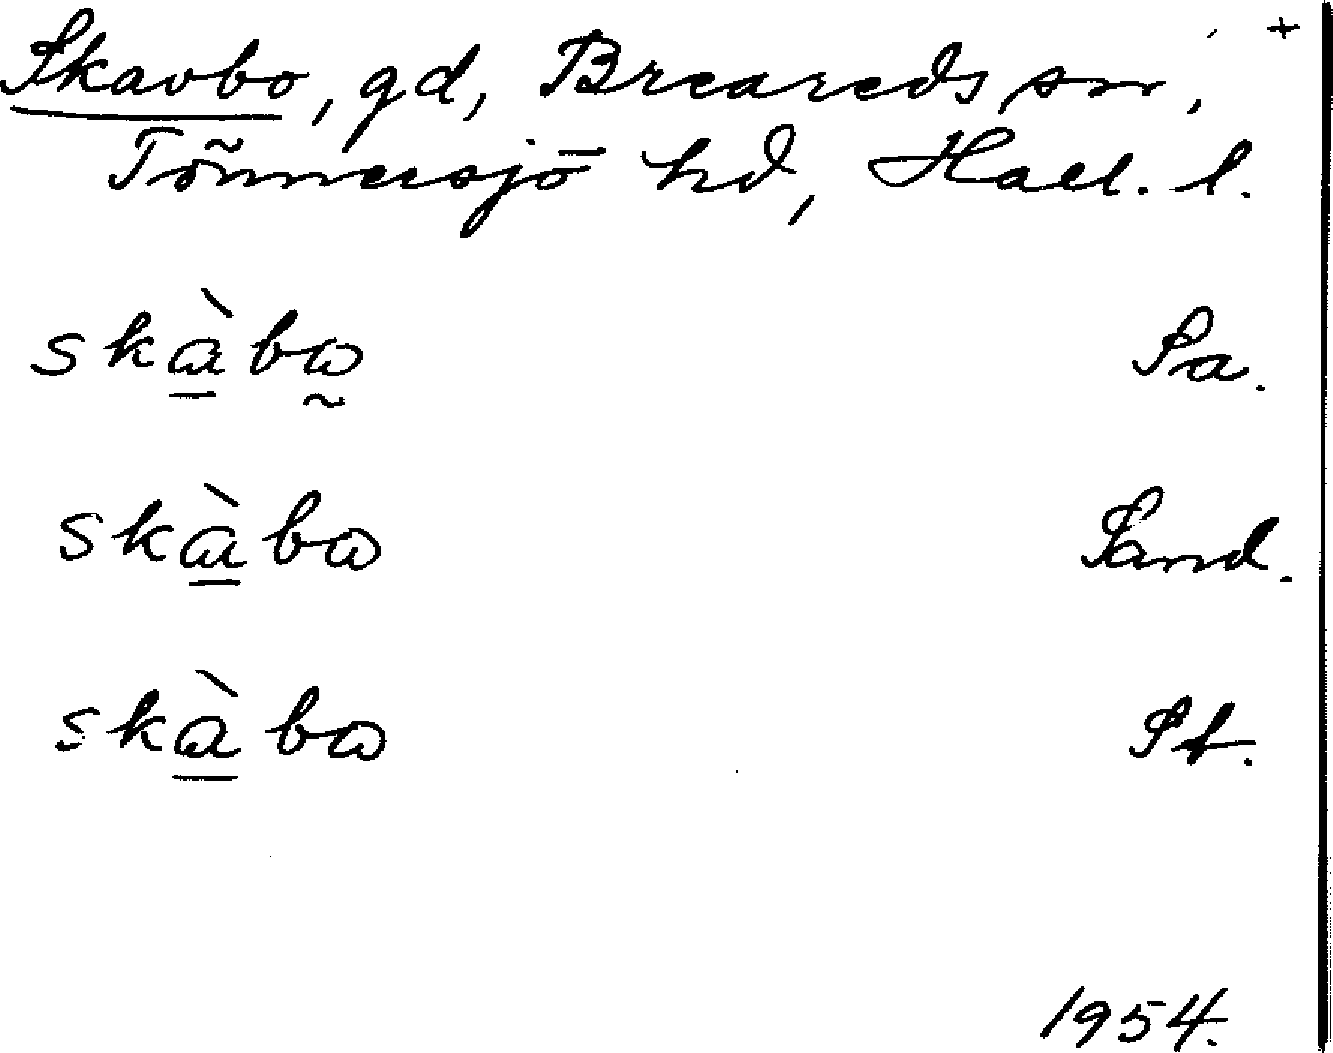 +
Skavbo, gd, Breareds sn,
Tönnersjö hd, Hall. l.
skàbω Sa.
skàbω Sand.
skàbω St.
1954.